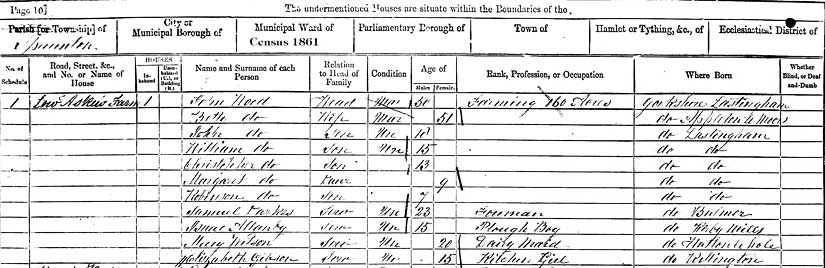 Page 10]
The undermentioned Houses are situate within the Boundaries of the
Parish for Township] of
City or Municipal Borough of
Municipal Ward of
Parliamentary Borough of
Town of
Hamlet or Tything, &c., of
Ecclesiastical District of
Census 1861
No. of Schedule
Road, Street, &c., and No. or Name of House
HOUSES
Inhabited
Uninhabited (U.), or Building (B.)
Name and Surname of each Person
Relation to Head of Family
Condition
Age of
Males
Females
Rank, Profession, or Occupation
Where Born
Whether Blind, or Deaf-and-Dumb
1 Low Askew Farm 1 John Head Mar 50 Farming 160 Acres Yorkshire Lastingham
do Wife Mar 51 do Appleton le Moors
John do Son Un do Lastingham
William do Son Un 15 do do
Christopher do Son 13 do do
Margaret do 9 do do
Robinson do Son 7 do do
Samuel Serv Un 23 Foreman do Bulmer
Isaac Serv Un 15 Plough Boy do
Mary Wilson Serv Un 20 Daily Maid do Hutton le hole
Elizabeth Gibson Serv Un 15 Kitchen Girl do